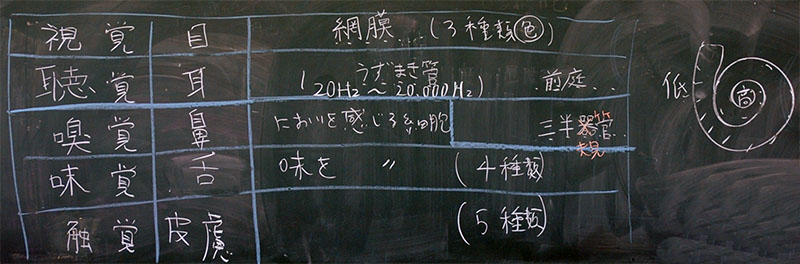 視覚 目 網膜 (3種類色)
聴覚 耳 うずまき管 前庭
(20Hz〜20,000Hz)
嗅覚 鼻 においを感じる細胞 三半器管
規
味覚 舌 味を 〃 (4種類)
触覚 皮膚 (5種類)
低 高